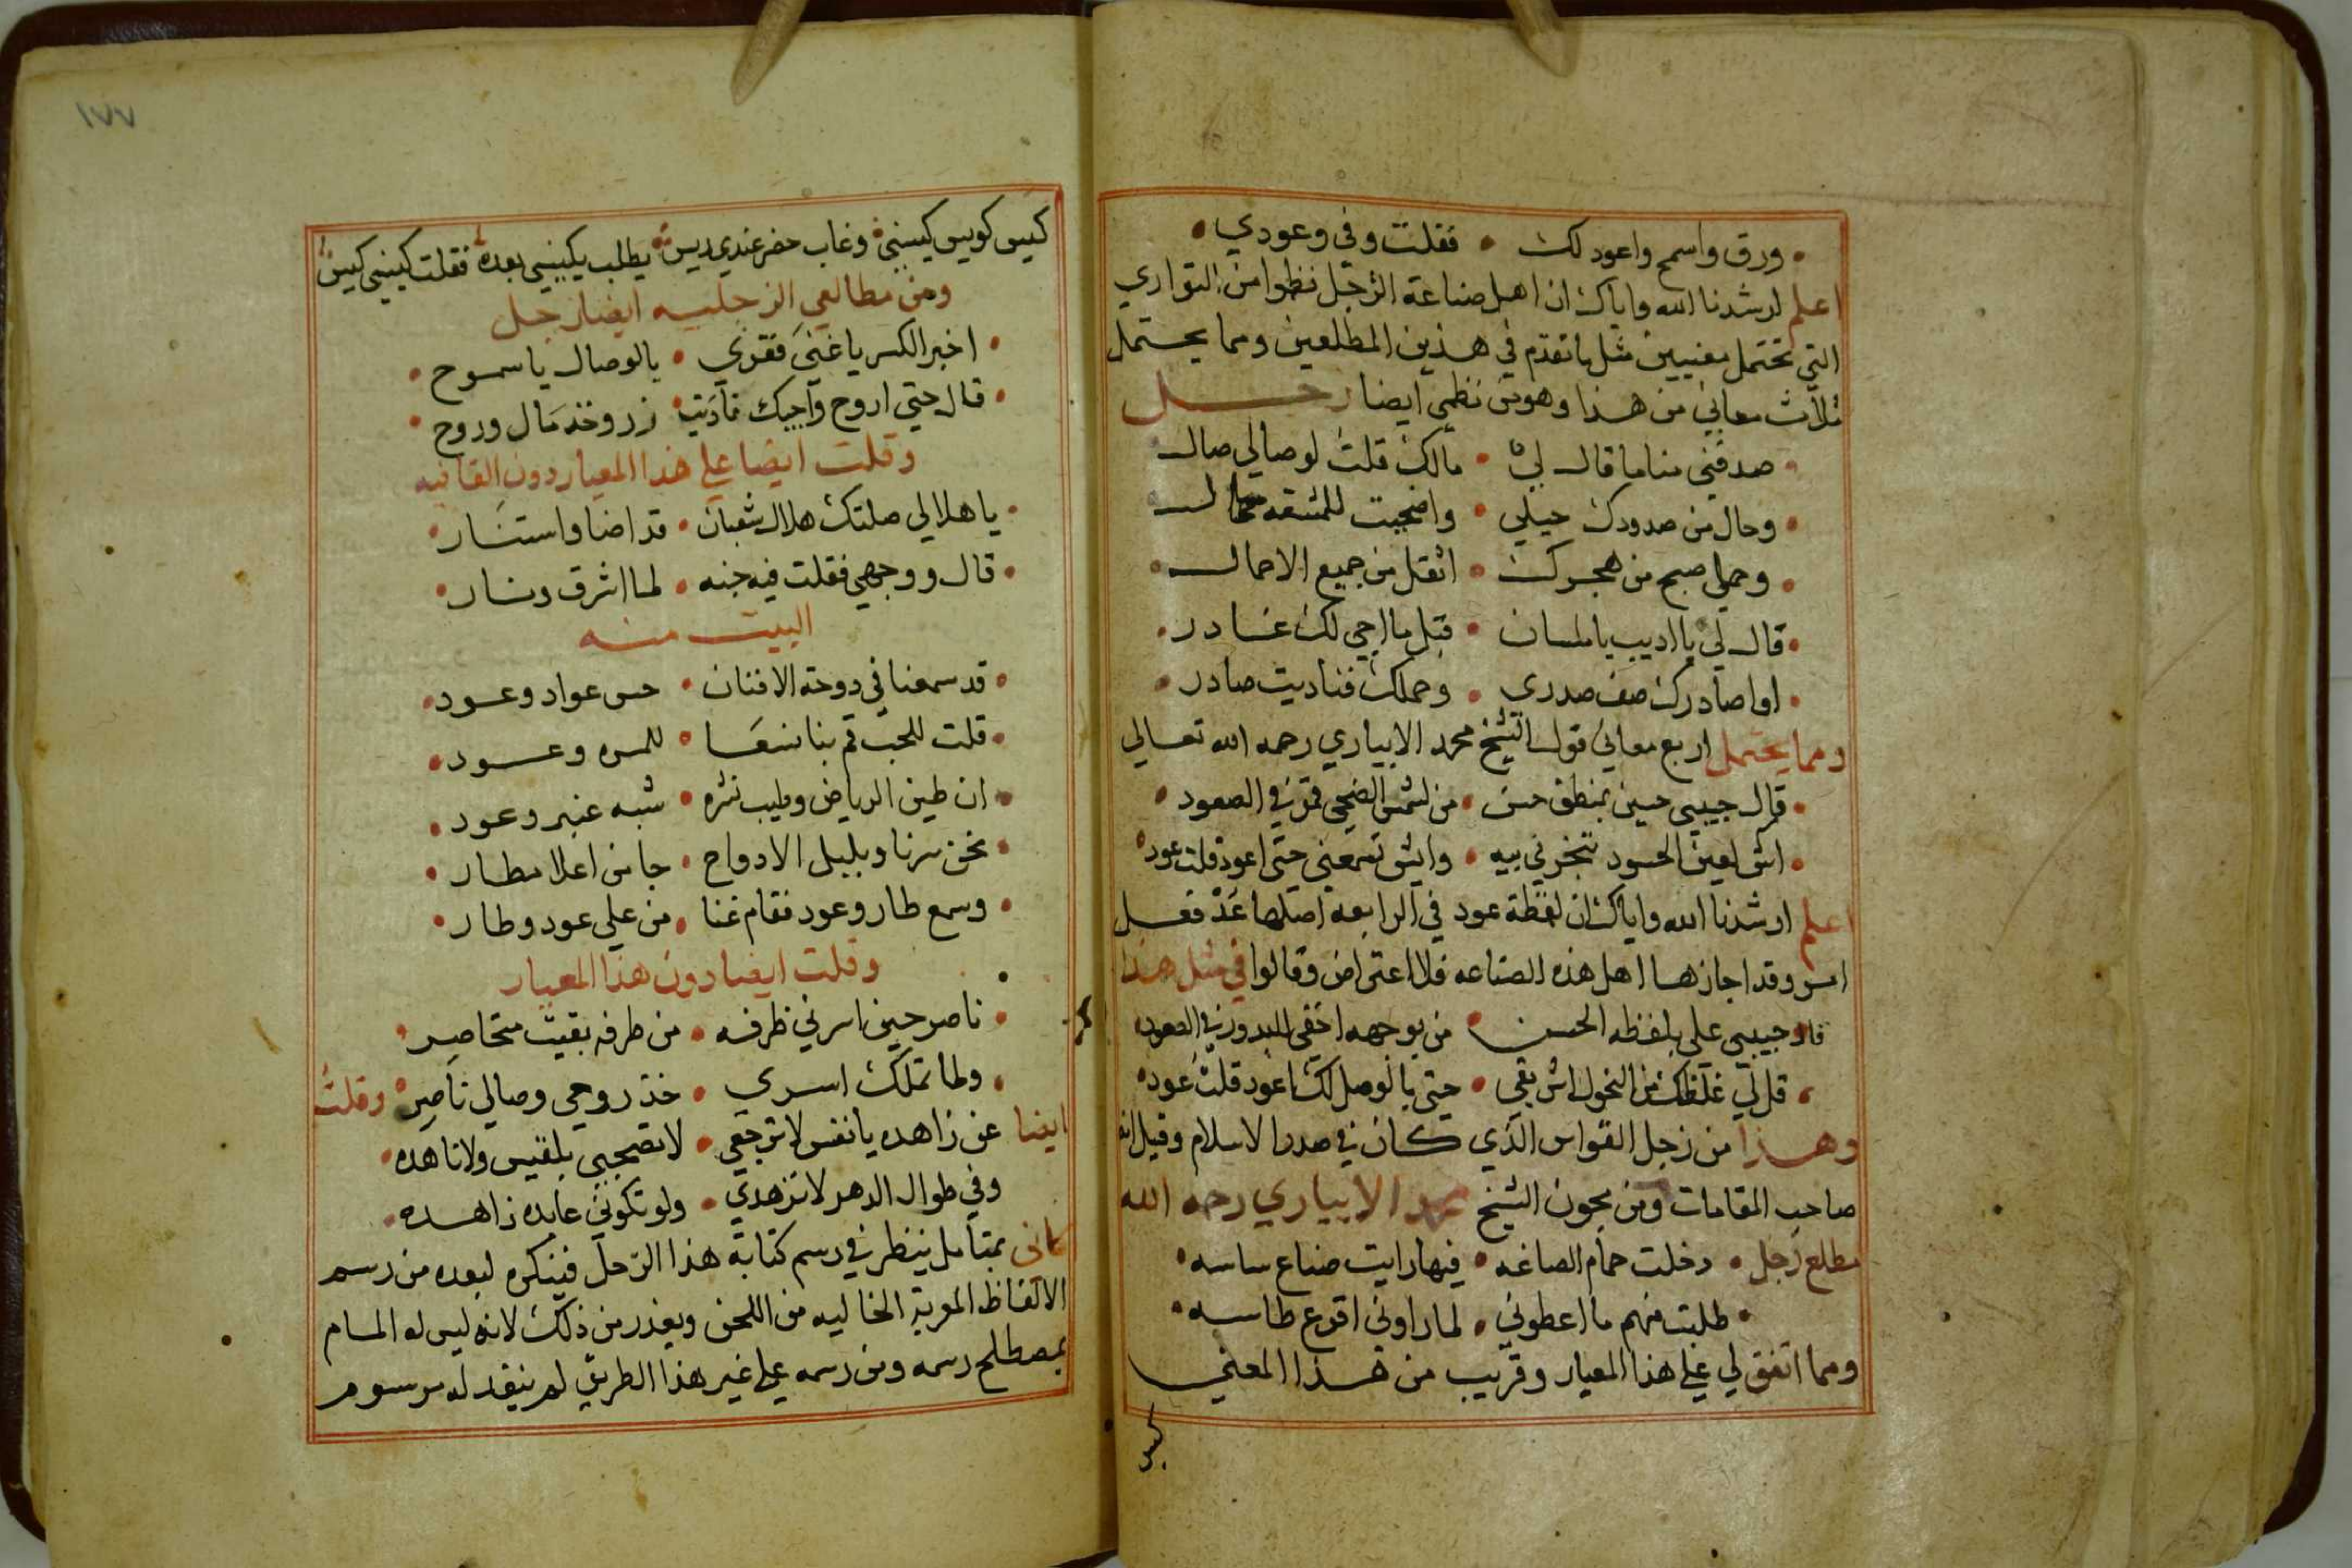 • ورق واسمح واعود لك • فقلت وفي وعودي •
اعلم ارشدنا الله واياك ان اهل صناعة الزجل نظموا من التواري
التي تحتمل معنيين مثل ما تقدم في هذين المطلعين ومما يحتمل
ثلاث معاني من هذا وهو من نظمي ايضا زجل
• صدفني مناما قال لي • مالك قلت لوصالي صال
• وحال من صدودك حيلي • واضحيت للمشقه حمال
• وحملي صبح من هجرك • اثقل من جميع الاحمال •
• قال لي يا اديب يا ملسان • قبل ما اجي لك غادر •
• اوا صادرك صف صدري • وحملك فناديت صادر •
ومما يحتمل اربع معاني قول الشيخ محمد الابياري رحمه الله تعالي
• قال حبيبي حسين بمنطق حسن • من لشمس الضحي قمر في الصعود •
• اش لعين الحسود تبخرني بيه • وايش تسمعني حتي اعود قلت عود •
اعلم ارشدنا الله واياك ان لفظة عود في الرابعه اصلها عد فعل
امر وقد اجازها اهل هذه الصناعه فلا اعتراض وقالوا في مثل هذا
قال حبيبي علي بلفظه الحسن • من بوجهه اخفي البدور في الصعود
• قل لي غلظك من النحول اش بقي • حتي بالوصل لك اعود قلت عود •
وهذا من زجل القواس الذي كان في صدر الاسلام وقيل انه
صاحب المقامات ومن مجون الشيخ محمد الابياري رحمه الله
مطلع زجل • دخلت حمام الصاغه • فيها رايت صناع ساسه •
• طلبت منهم ما اعطوني • لما راوني اقرع طاسه •
ومما اتفق لي علي هذا المعيار وقريب من هذا المعني
كيس
١٧٧
كيس كويس كيسني • وغاب حضر عندي ريس • يطلب يكيسني بعده • فقلت كيسني كيس
ومن مطالعي الزجليه ايضا زجل
• اخبر الكسر يا غني فقري • بالوصال يا سموح •
• قال حتي اروح واجيك ناديت • زر وخذ مال وروح •
وقلت ايضا علي هذا المعيار دون القافيه
• يا هلالي صلتك هلال شعبان • قد اضا واستنار •
• قال ووجهي فقلت فيه جنه • لما اشرق ونار •
البيت منه
• قد سمعنا في دوحة الافنان • حس عواد وعود •
• قلت للحب قم بنا نسعا • للمره وعود •
• ان طين الرياض وطيب نشره • شبه عنبر وعود •
• نحن سرنا وبلبل الادواح • جا من اعلا مطار •
• وسمع طار وعود فقام غنا • من علي عود وطار •
وقلت ايضا دون هذا المعيار
• ناصر حين اسرني ظرفه • من طرفه بقيت متحاصر •
• ولما تملك اسري • خذ روحي وصالي ناصر • وقلت
ايضا عن زاهده يا نفس لا ترجعي • لا تصحبي بلقيس ولا ناهده •
وفي طوال الدهر لا تزهدي • ولو تكوني عابده زاهده •
كاني بمتامل ينظر في رسم كتابة هذا الزجل فينكره لبعده من رسم
الالفاظ المعربة الخاليه من اللحن ويعذر من ذلك لانه ليس له المام
بمصطلح رسمه ومن رسمه علي غير هذا الطريق لم ينقد له مرسوم